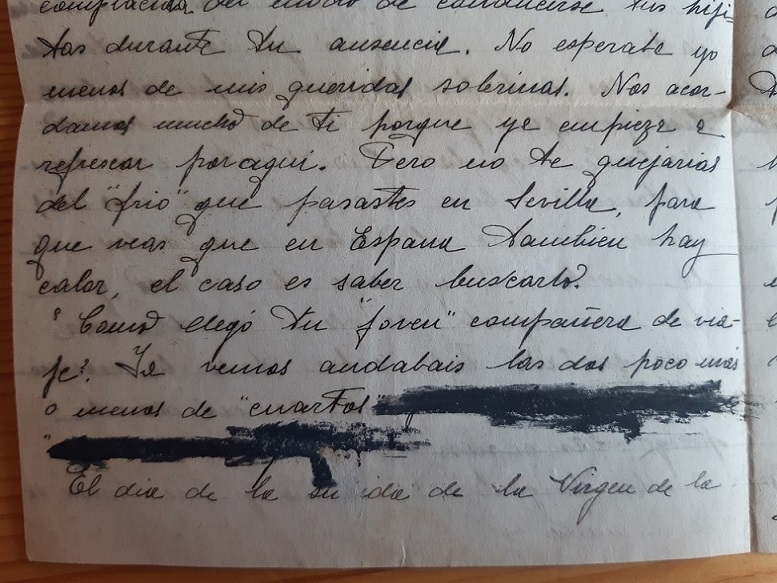 complacida del modo de conducirse tus hiji-
tas durante tu ausencia. No esperaba yo
menos de mis queridas sobrinas. Nos acor-
damos mucho de ti porque ya empieza a
refrescar por aqui. Pero no te quejarias
del "frio" que pasastes en Sevilla, para
que veas que en España tambien hay
calor, el caso es saber buscarlo.
¿Como llegó tu "joven" compañera de via-
je? Ya vemos andabais las dos poco más
o menos de "cuartos"
El dia de la su ida de la Virgen de la